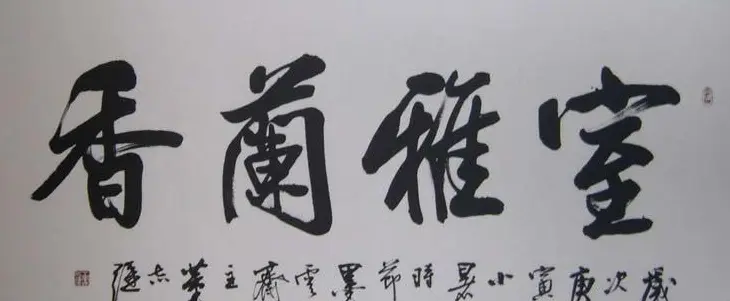 室雅蘭香
歲次庚寅小暑時節墨雲齋主